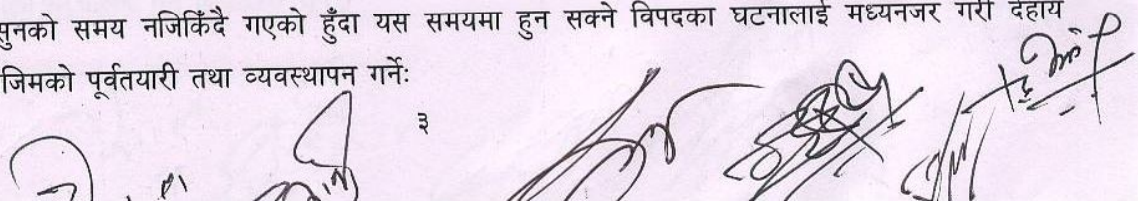 सुनको समय नजिकिँदै गएको हुँदा यस समयमा हुन सक्ने विपदका घटनालाई मध्यनजर गरी देहाय
जिमको पूर्वतयारी तथा व्यवस्थापन गर्नेः
३